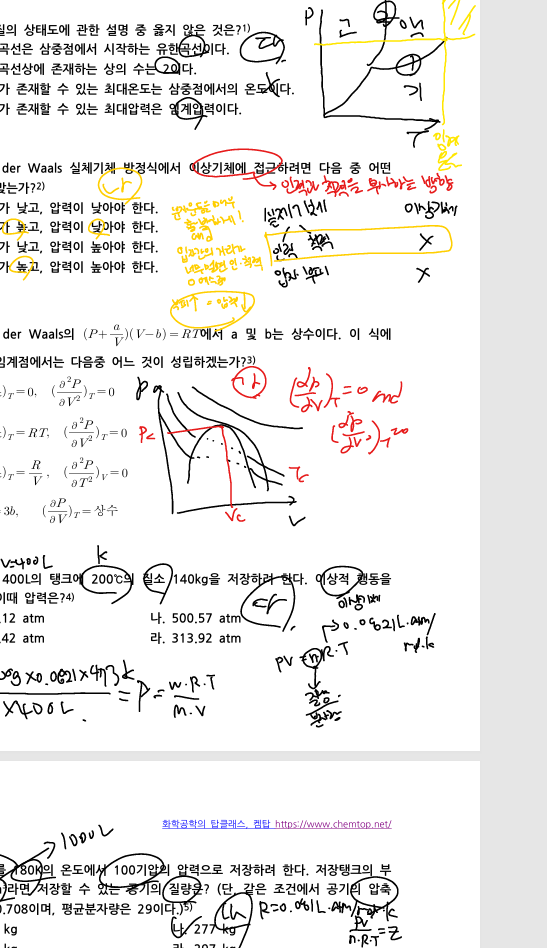 P
질의 상태도에 관한 설명 중 옳지 않은 것은?1)
고
액
곡선은 삼중점에서 시작하는 유한곡선이다.
곡선상에 존재하는 상의 수는 2이다.
가 존재할 수 있는 최대온도는 삼중점에서의 온도이다.
기
가 존재할 수 있는 최대압력은 임계압력이다.
T
der Waals 실제기체 방정식에서 이상기체에 접근하려면 다음 중 어떤
맞는가?2)
나
→ 인력과 척력을 무시하는 방향
가 낮고, 압력이 낮아야 한다.
실제기체
이상기체
가 높고, 압력이 낮아야 한다.
인력 척력 X
가 낮고, 압력이 높아야 한다.
가 높고, 압력이 높아야 한다.
입자 부피 X
부피↑ = 압력↓
der Waals의 (P+a/V)(V−b)=RT에서 a 및 b는 상수이다. 이 식에
임계점에서는 다음중 어느 것이 성립하겠는가?3)
)T=0, (∂²P/∂V²)T=0
가
(dp/dV)T=0 and
)T=RT, (∂²P/∂V²)T=0
Pc
)T=R/V, (∂²P/∂T²)V=0
Tc
=3b, (∂P/∂V)T=상수
Vc
V
V=400L
K
400L의 탱크에 200℃의 질소 140kg을 저장하려 한다. 이상적 행동을
이때 압력은?4)
이상기체
.12 atm
나. 500.57 atm
→ 0.0821L·atm/mol·k
.42 atm
라. 313.92 atm
PV = nRT
질량/분자량
00g×0.0821×473k/×400L = P = w·R·T/M·V
화학공학의 탑클래스, 켐탑 https://www.chemtop.net/
→ 1000L
를 180K의 온도에서 100기압의 압력으로 저장하려 한다. 저장탱크의 부
)라면 저장할 수 있는 공기의 질량은? (단, 같은 조건에서 공기의 압축
0.708이며, 평균분자량은 29이다.)5)
kg
나. 277 kg
PV/n·R·T = Z
kg
라. 307 kg